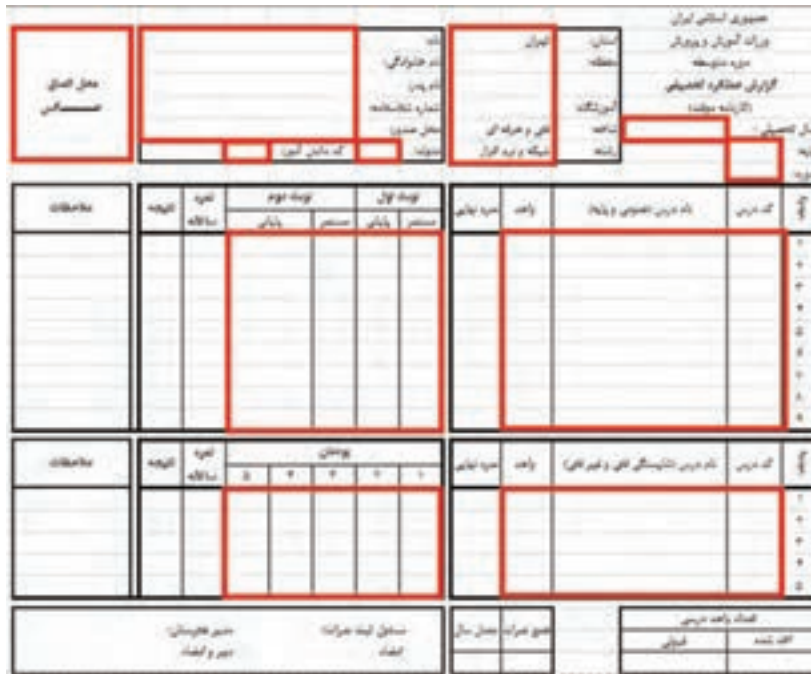 جمهوری اسلامی ایران
وزرات آموزش و پرورش
دوره متوسطه
گزارش عملکرد تحصیلی
(کارنامه موقت)
سال تحصیلی:
پایه:
دوره:
استان: تهران
منطقه:
آموزشگاه:
شاخه: فنی و حرفه ای
رشته: شبکه و نرم افزار
نام:
نام خانوادگی:
نام پدر:
شماره شناسنامه:
محل صدور:
متولد: کد دانش آموز:
محل الصاق
عکس
ردیف کد درس نام درس (عمومی و پایه) واحد نمره نهایی نوبت اول نوبت دوم نمره سالانه نتیجه ملاحظات
مستمر پایانی مستمر پایانی
۱
۲
۳
۴
۵
۶
۷
۸
۹
ردیف کد درس نام درس (شایستگی فنی و غیر فنی) واحد نمره نهایی پودمان نمره سالانه نتیجه ملاحظات
۱ ۲ ۳ ۴ ۵
۱
۲
۳
۴
۵
تعداد واحد درسی
اخذ شده قبولی
جمع نمرات معدل سال
مسئول ثبت نمرات: مدیر هنرستان:
امضاء مهر و امضاء